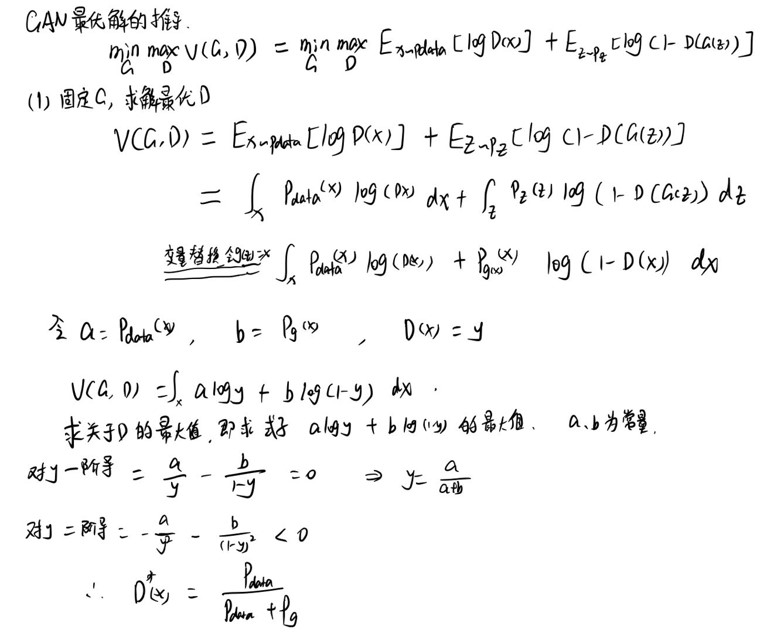 GAN最优解的推导.
min_G max_D V(G, D) = min_G max_D E_{x~pdata}[log D(x)] + E_{z~Pz}[log(1-D(G(z))]
(1) 固定G, 求解最优D
V(G,D) = E_{x~pdata}[log D(x)] + E_{z~Pz}[log(1-D(G(z))]
= ∫_x Pdata(x) log(D(x) dx + ∫_z Pz(z) log(1-D(G(z)) dz
变量替换 令g(z)=x ∫_x Pdata(x) log(D(x)) + Pg(x) log(1-D(x)) dx
令 a = Pdata(x), b = Pg(x), D(x) = y
V(G, D) = ∫_x a log y + b log(1-y) dx.
求关于D的最大值, 即求式子 a log y + b log(1-y) 的最大值. a、b为常量.
对y一阶导 = a/y - b/(1-y) = 0 ⇒ y = a/(a+b)
对y二阶导 = -a/y² - b/(1-y)² < 0
∴ D*(x) = Pdata/(Pdata + Pg)